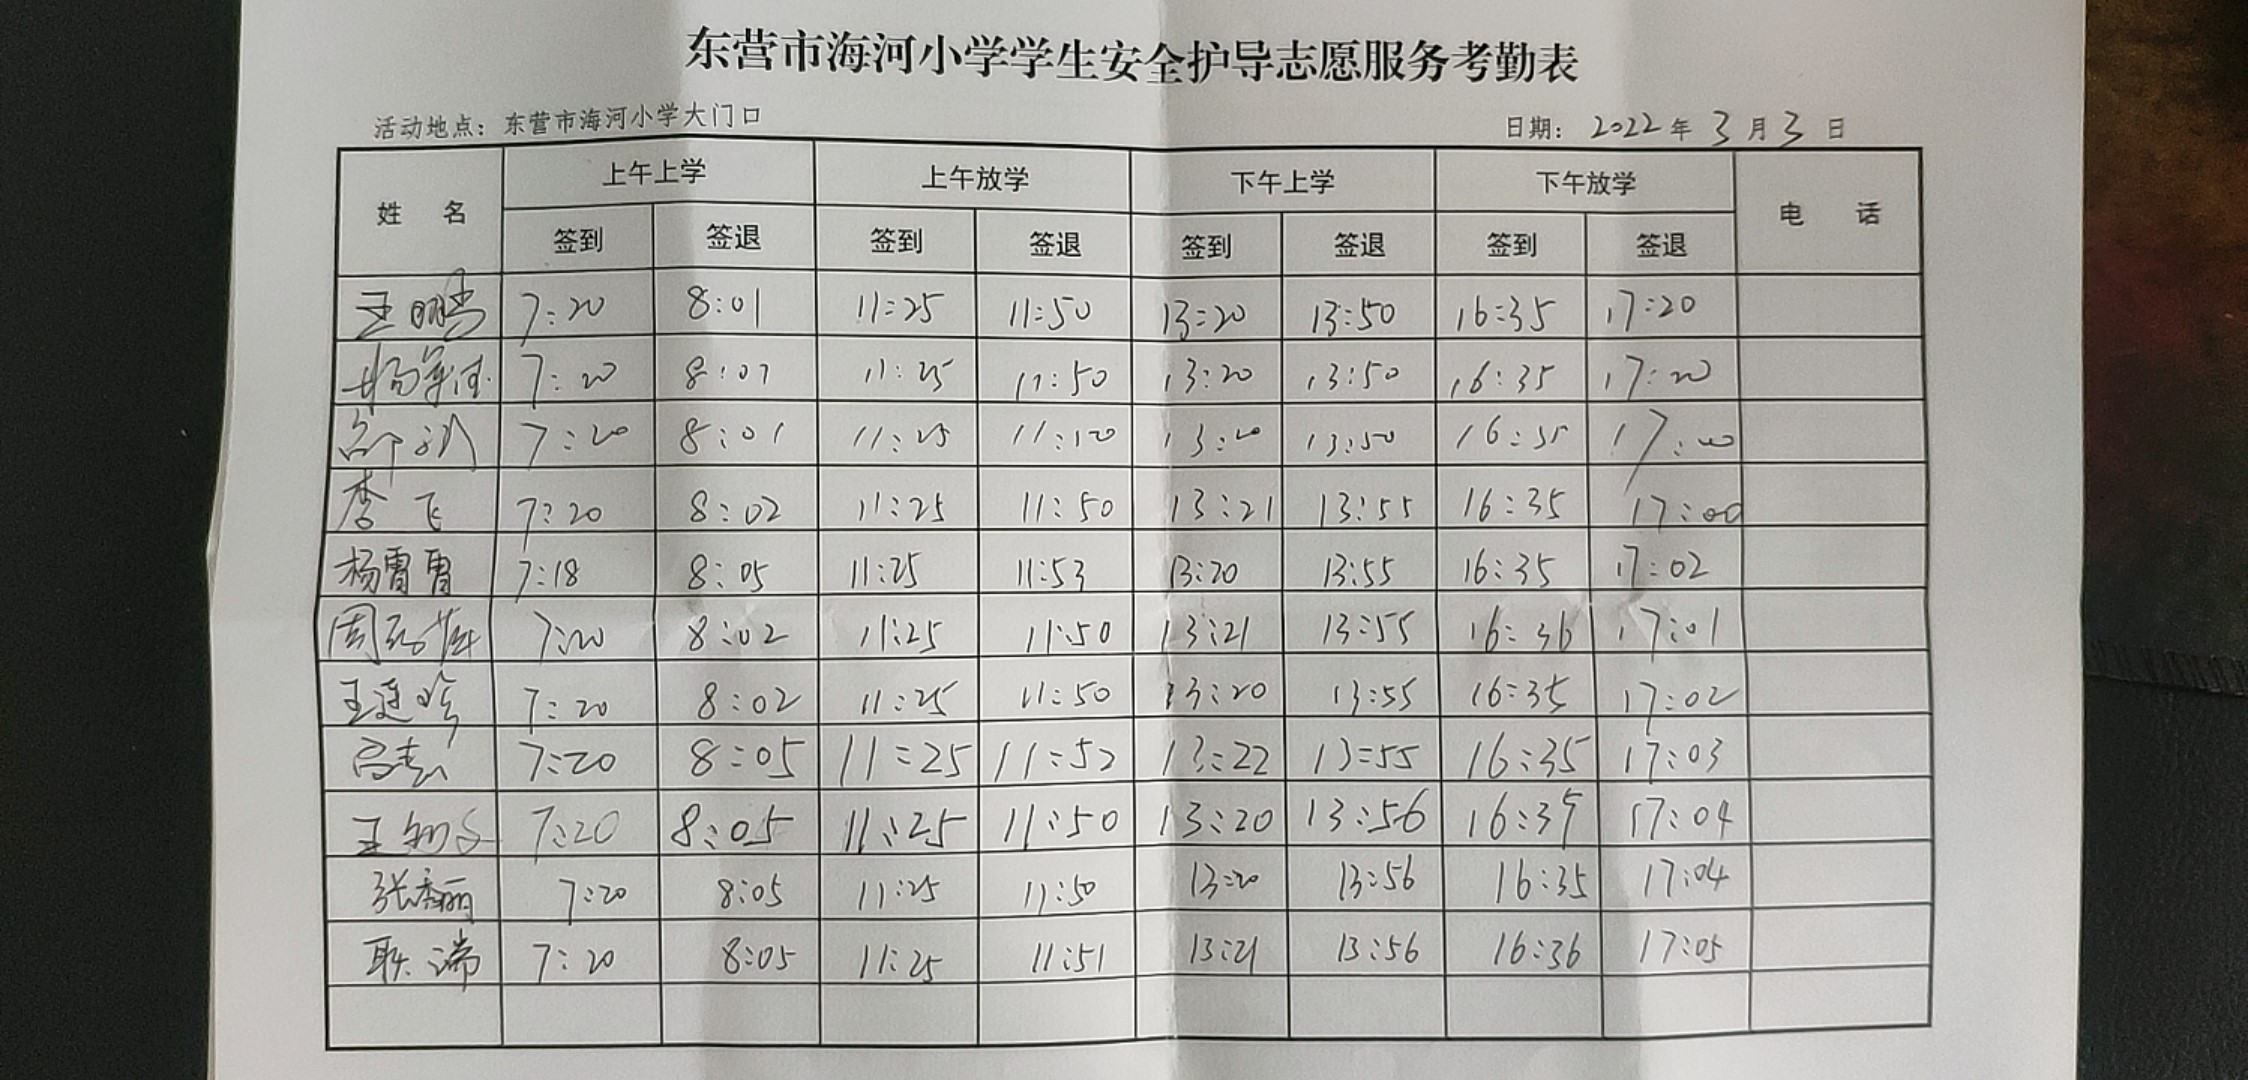 东营市海河小学学生安全护导志愿服务考勤表
活动地点：东营市海河小学大门口 日期： 2022 年 3 月 3 日
姓 名 上午上学 上午放学 下午上学 下午放学 电 话
签到 签退 签到 签退 签到 签退 签到 签退
王鹏 7:20 8:01 11:25 11:50 13:20 13:50 16:35 17:20
杨 7:20 8:01 11:25 11:50 13:20 13:50 16:35 17:20
7:20 8:01 11:25 13:20 13:50 16:35
李飞 7:20 8:02 11:25 11:50 13:21 13:55 16:35 17:00
杨霄霄 7:18 8:05 11:25 11:53 13:20 13:55 16:35 17:02
周 7:20 8:02 11:25 11:50 13:21 13:55 16:36 17:01
王 7:20 8:02 11:25 11:50 13:20 13:55 16:35 17:02
7:20 8:05 11:25 11:52 13:22 13:55 16:35 17:03
王 7:20 8:05 11:25 11:50 13:20 13:56 17:04
张秀丽 7:20 8:05 11:25 11:50 13:20 13:56 16:35 17:04
耿瑞 7:20 8:05 11:25 11:51 13:21 13:56 16:36 17:05